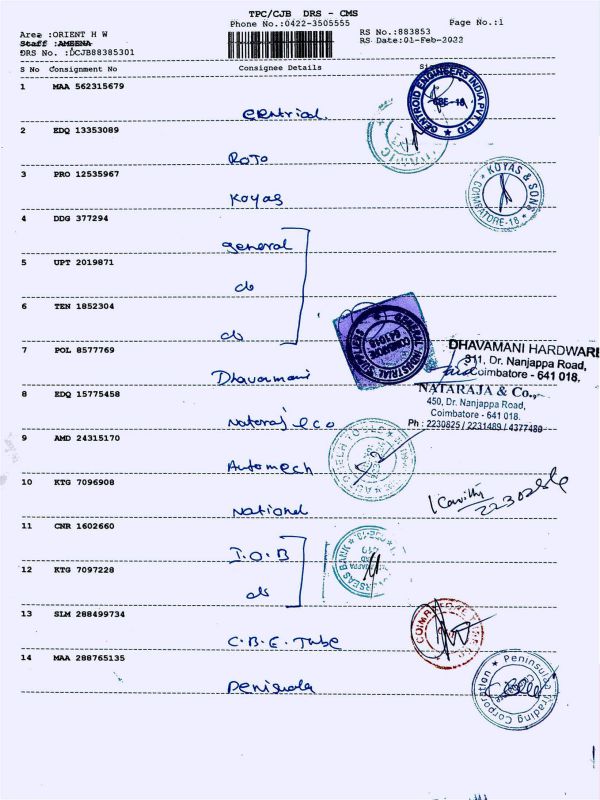 TPC/CJB DRS - CMS
Phone No.:0422-3505555
Page No.:1
Area :ORIENT H W
Staff :AMEENA
DRS No. :DCJB88385301
RS No.:883853
RS Date:01-Feb-2022
S No Consignment No Consignee Details
1 MAA 562315679
Centriod
GENTROID ENGINEERS INDIA PVT. LTD
CBE-18
2 EDQ 13353089
ROTO
3 PRO 12535967
Koyas
KOYAS & SONS
COIMBATORE-18
4 DDG 377294
general
5 UPT 2019871
do
6 TEN 1852304
do
GENERAL INDUSTRIAL SUPPLIERS
COIMBATORE
641018
7 POL 8577769
Dhavamani
DHAVAMANI HARDWARE
911, Dr. Nanjappa Road,
Coimbatore - 641 018.
8 EDQ 15775458
Nataraj & co
NATARAJA & Co.,
450, Dr. Nanjappa Road,
Coimbatore - 641 018.
Ph : 2230825 / 2231489 / 4377480
9 AMD 24315170
Automech
10 KTG 7096908
National
Kavitha
11 CNR 1602660
I.O.B
12 KTG 7097228
do
13 SLM 288499734
C.B.E. Tube
14 MAA 288765135
Penisula
Peninsula Trading Corporation